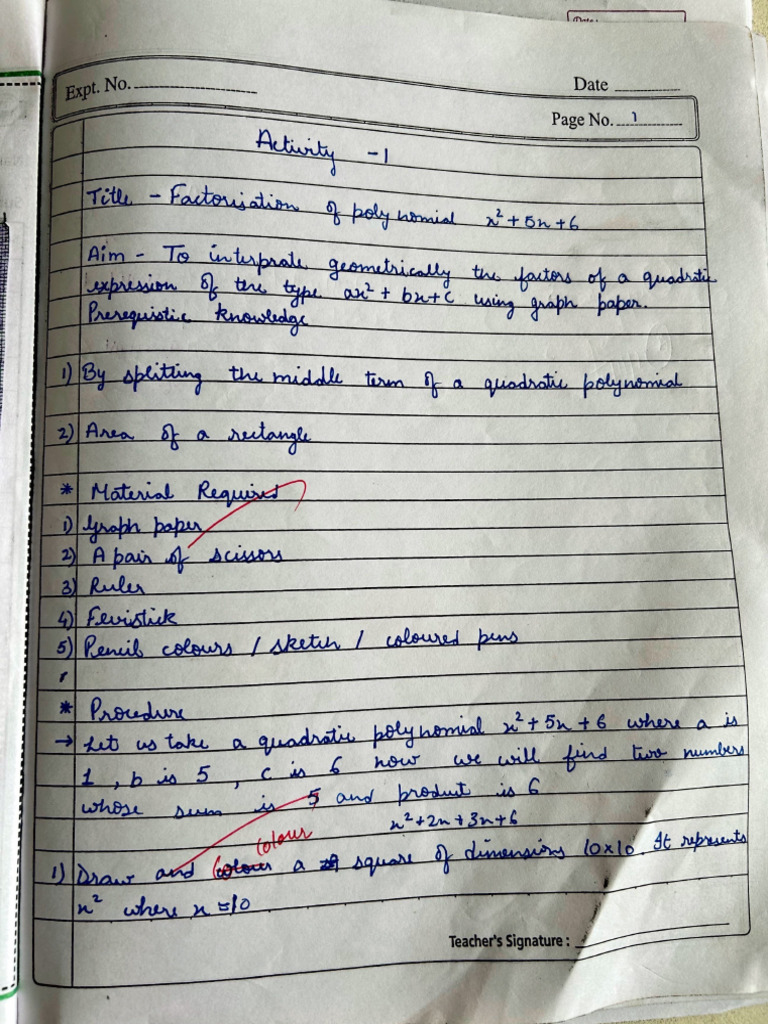 Date :
Expt. No.
Date
Page No. 1
Activity - 1
Title - Factorisation of polynomial x² + 5x + 6
Aim - To interprate geometrically the factors of a quadratic
expression of the type ax² + bx + c using graph paper.
Prerequistic knowledge
1) By splitting the middle term of a quadratic polynomial
2) Area of a rectangle
* Material Required
1) Graph paper
2) A pair of scissors
3) Ruler
4) Fevistick
5) Pencil colours / sketch / coloured pens
* Procedure
→ Let us take a quadratic polynomial x² + 5x + 6 where a is
1 , b is 5 , c is 6 now we will find two numbers
whose sum is 5 and product is 6
x² + 2x + 3x + 6
colour
1) Draw and a square of dimensions 10×10. It represents
x² where x = 10
Teacher's Signature :